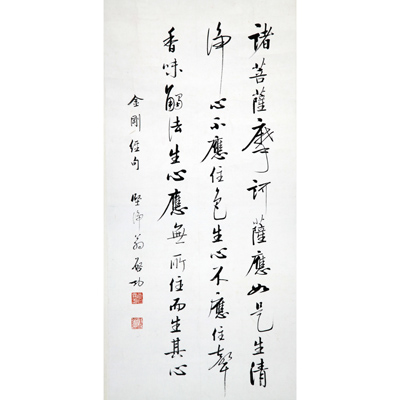 諸菩薩摩訶薩應如是生清
淨心不應住色生心不應住聲
香味觸法生心應無所住而生其心
金剛經句 堅淨翁啓功